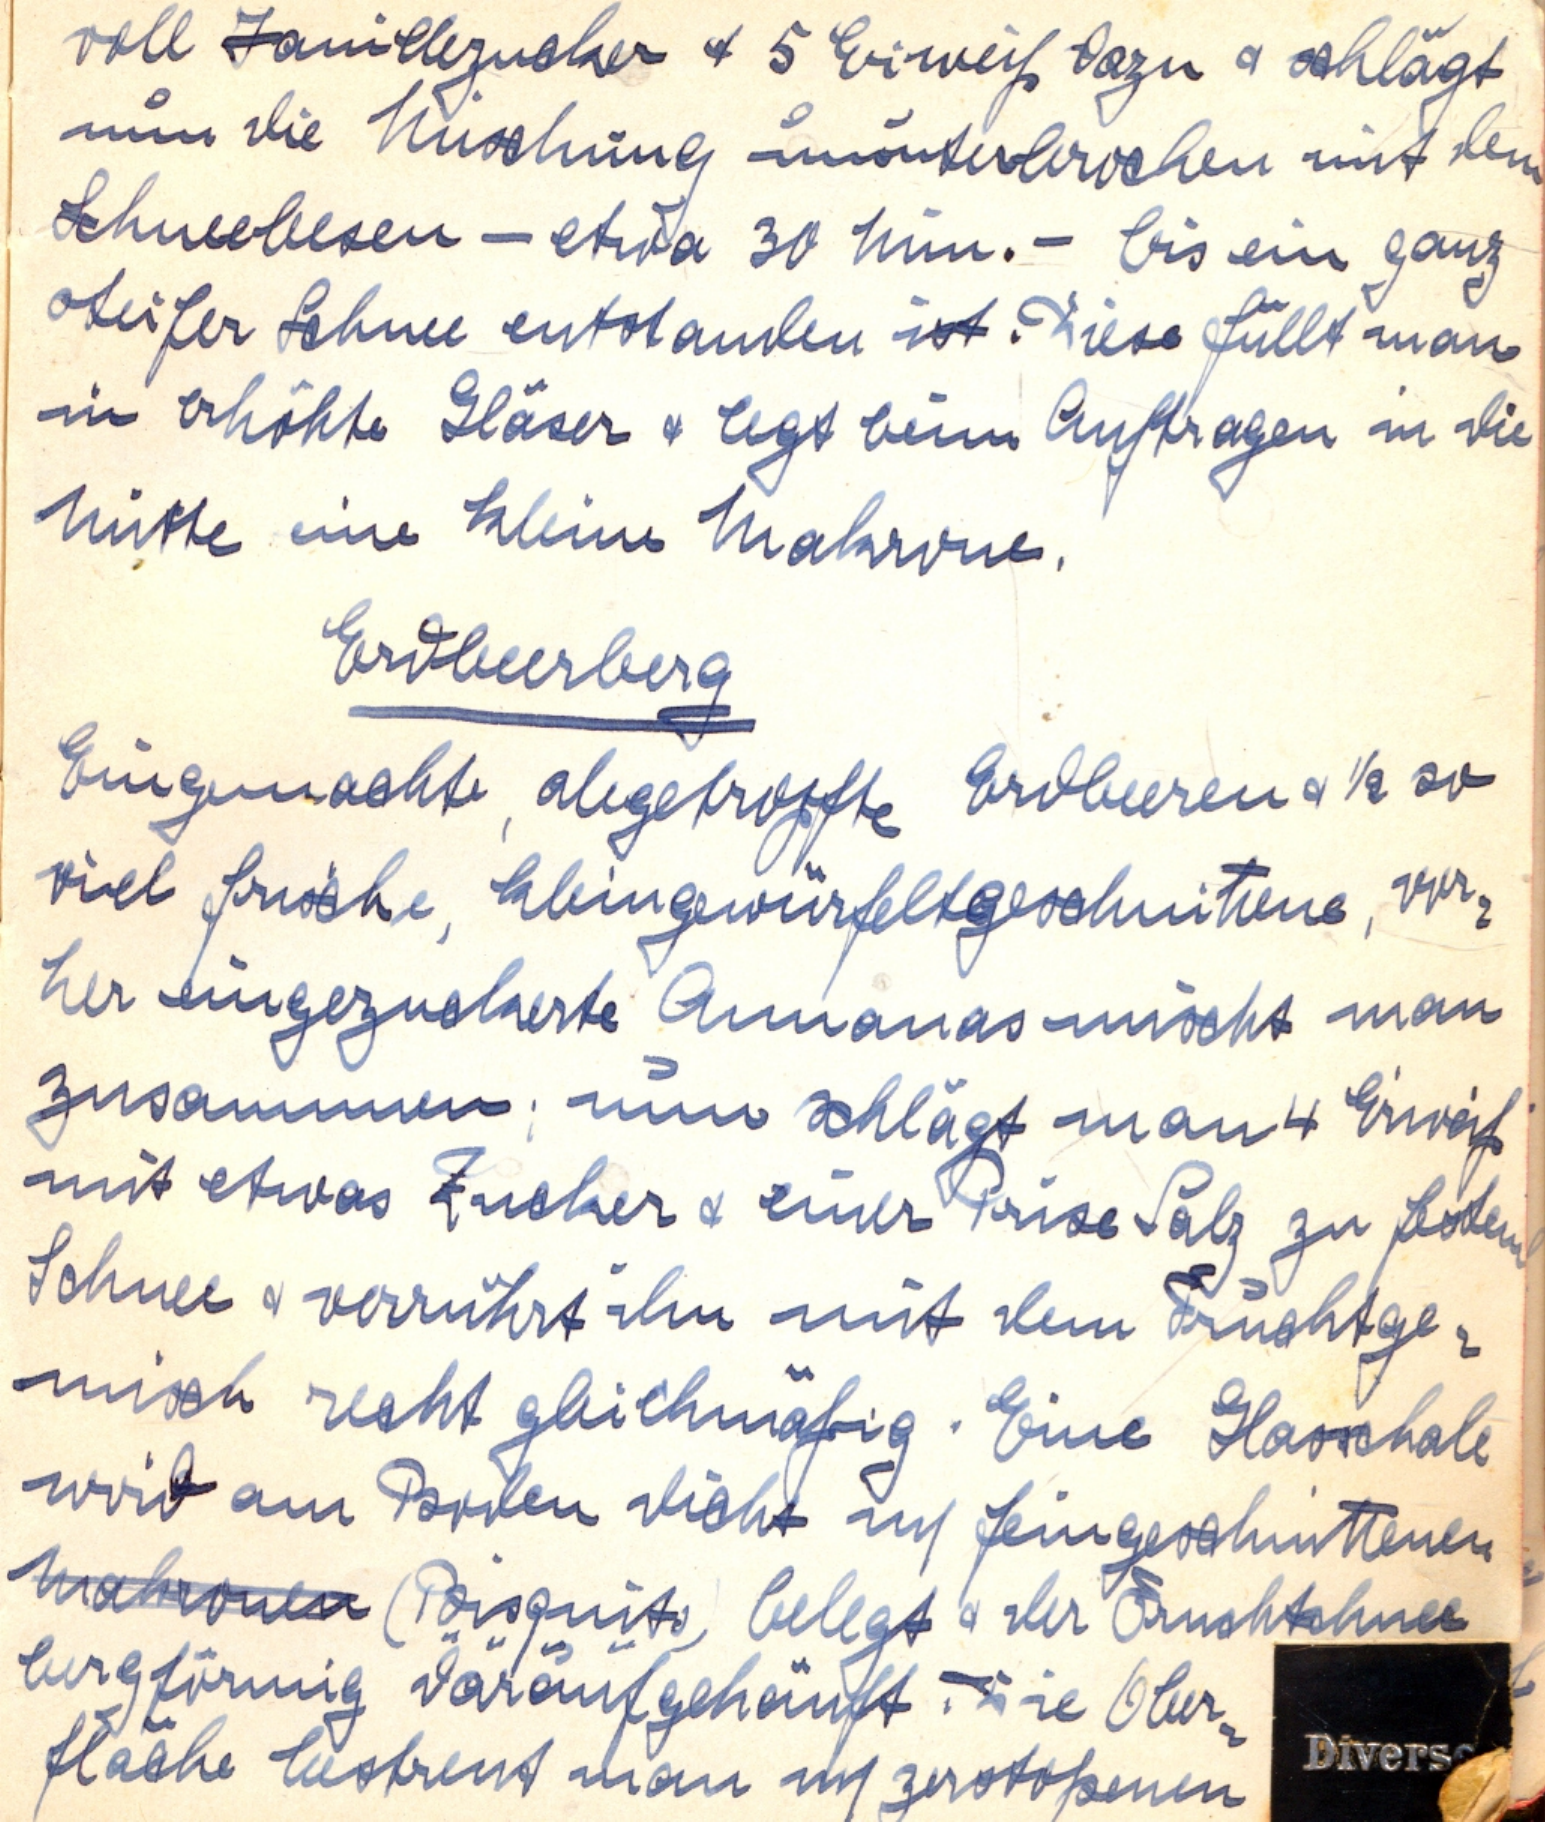 voll Vanillezucker & 5 Eiweiß dazu & schlägt
nun die Mischung ununterbrochen mit dem
Schneebesen – etwa 30 Min. – bis ein ganz
steifer Schnee entstanden ist. Diese füllt man
in erhöhte Gläser & legt beim Auftragen in die
Mitte eine kleine Makrone.
Erdbeerberg
Eingemachte, abgetropfte Erdbeeren & 1/2 so
viel frische, kleingewürfeltgeschnittene, vor-
her eingezuckerte Annanas mischt man
zusammen; nun schlägt man 4 Eiweiß
mit etwas Zucker & einer Prise Salz zu festem
Schnee & verrührt ihn mit dem Fruchtge-
misch recht gleichmäßig. Eine Glasschale
wird am Boden dicht m/ feingeschnittenen
Makronen (Bisquits) belegt & der Fruchtschnee
bergförmig daraufgehäuft. Die Ober-
fläche bestreut man m/ zerstoßenen
Diverse